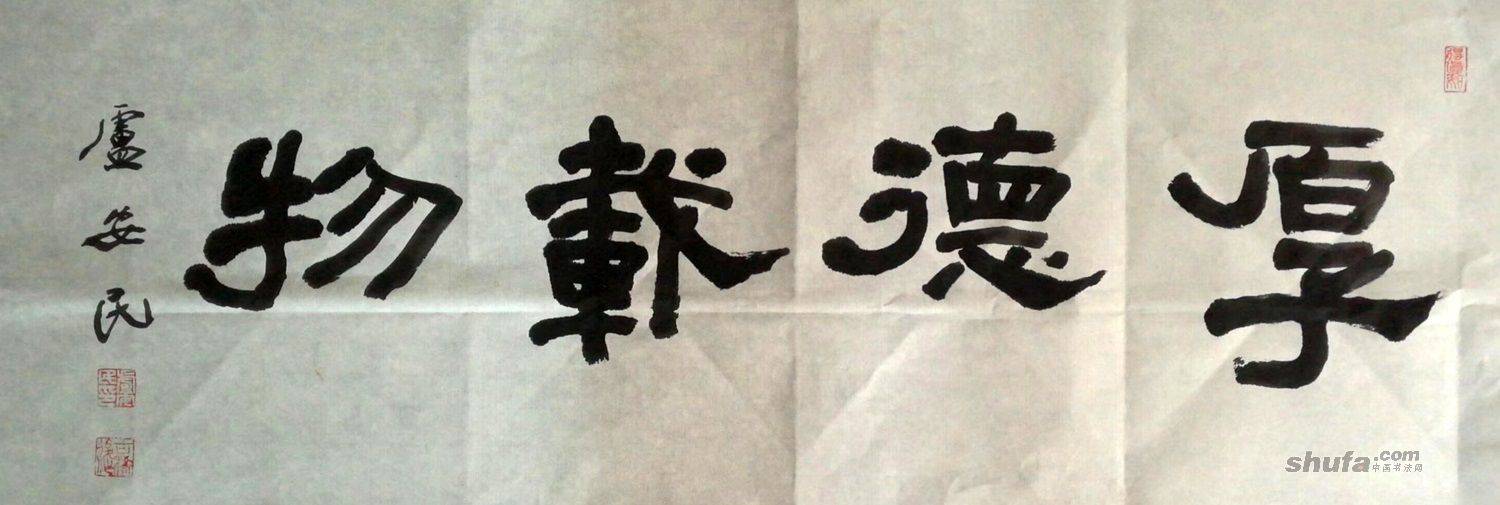 厚德載物
盧安民
shufa.com
中国书法网